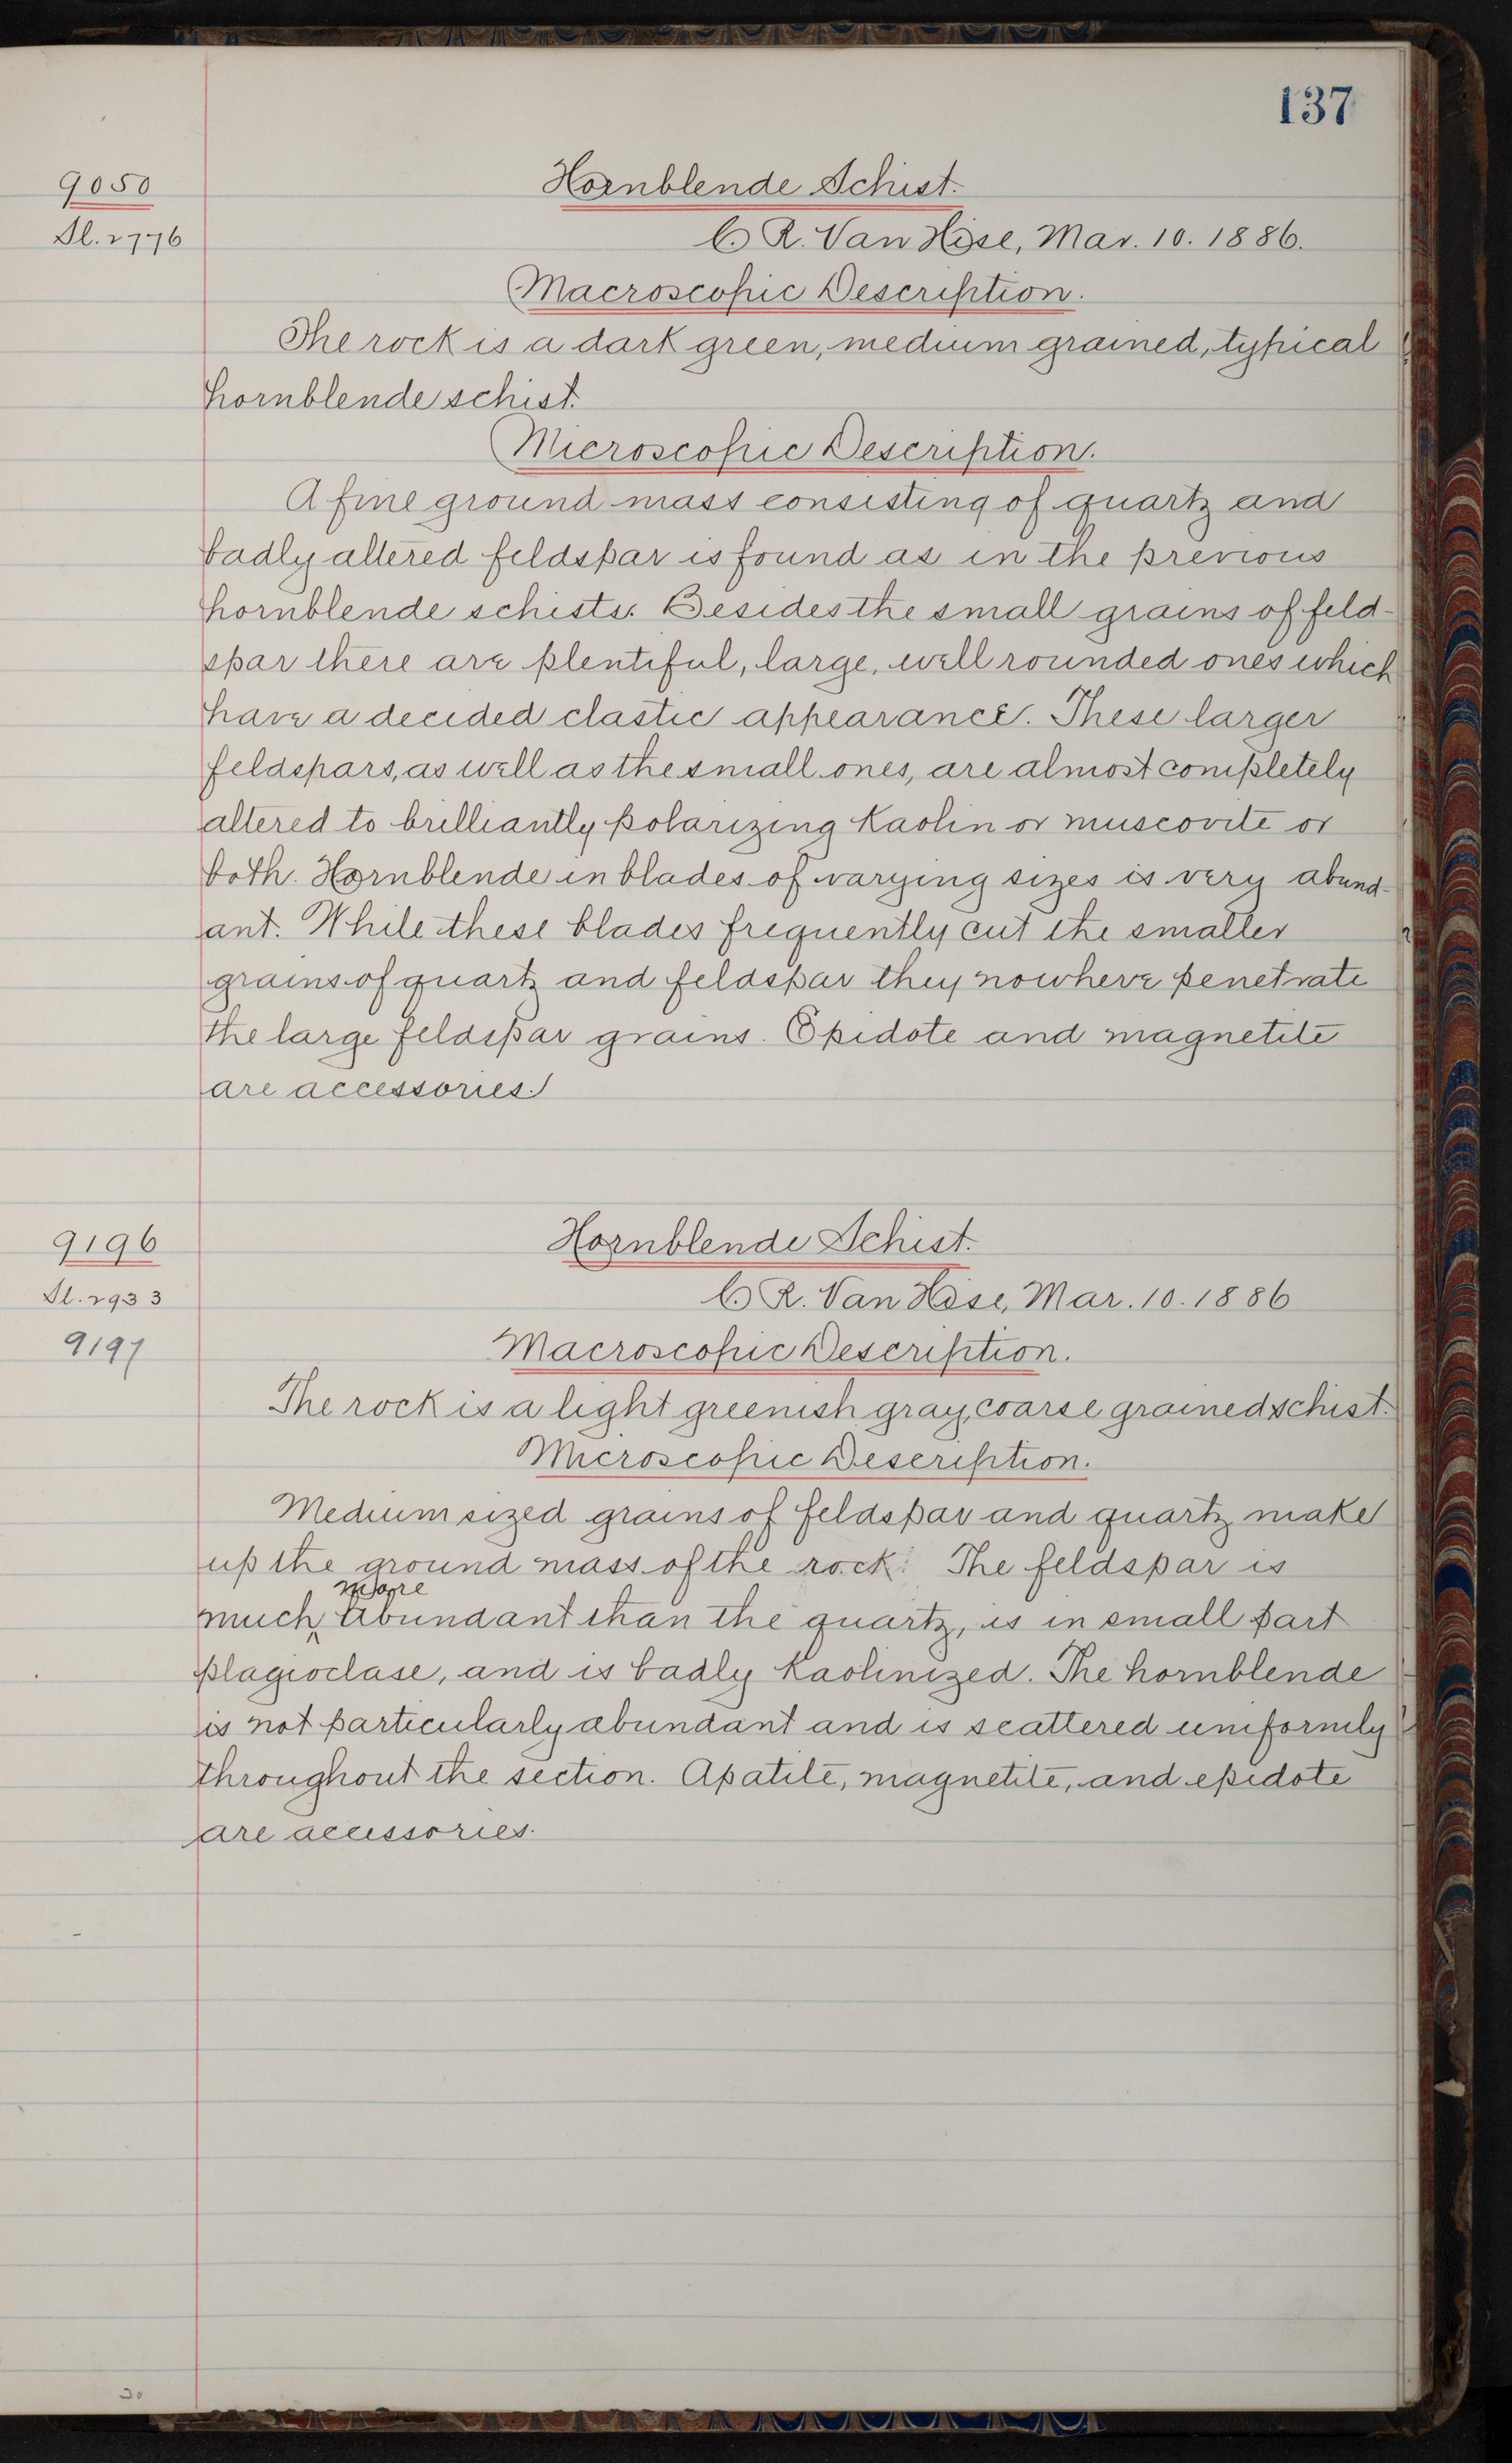 137
9050
Hornblende Schist.
Sl. 2776
C. R. Van Hise, Mar. 10. 1886.
Macroscopic Description.
The rock is a dark green, medium grained, typical
hornblende schist.
Microscopic Description.
A fine ground mass consisting of quartz and
badly altered feldspar is found as in the previous
hornblende schists. Besides the small grains of feld-
spar there are plentiful, large, well rounded ones which
have a decided clastic appearance. These larger
feldspars, as well as the small ones, are almost completely
altered to brilliantly polarizing kaolin or muscovite or
both. Hornblende in blades of varying sizes is very abund-
ant. While these blades frequently cut the smaller
grains of quartz and feldspar they nowhere penetrate
the large feldspar grains. Epidote and magnetite
are accessories.
9196
Hornblende Schist.
Sl. 2933
C. R. Van Hise, Mar. 10. 1886
9197
Macroscopic Description.
The rock is a light greenish gray, coarse grained schist.
Microscopic Description.
Medium sized grains of feldspar and quartz make
up the ground mass of the rock. The feldspar is
much more abundant than the quartz, is in small part
plagioclase, and is badly kaolinized. The hornblende
is not particularly abundant and is scattered uniformly
throughout the section. Apatite, magnetite, and epidote
are accessories.